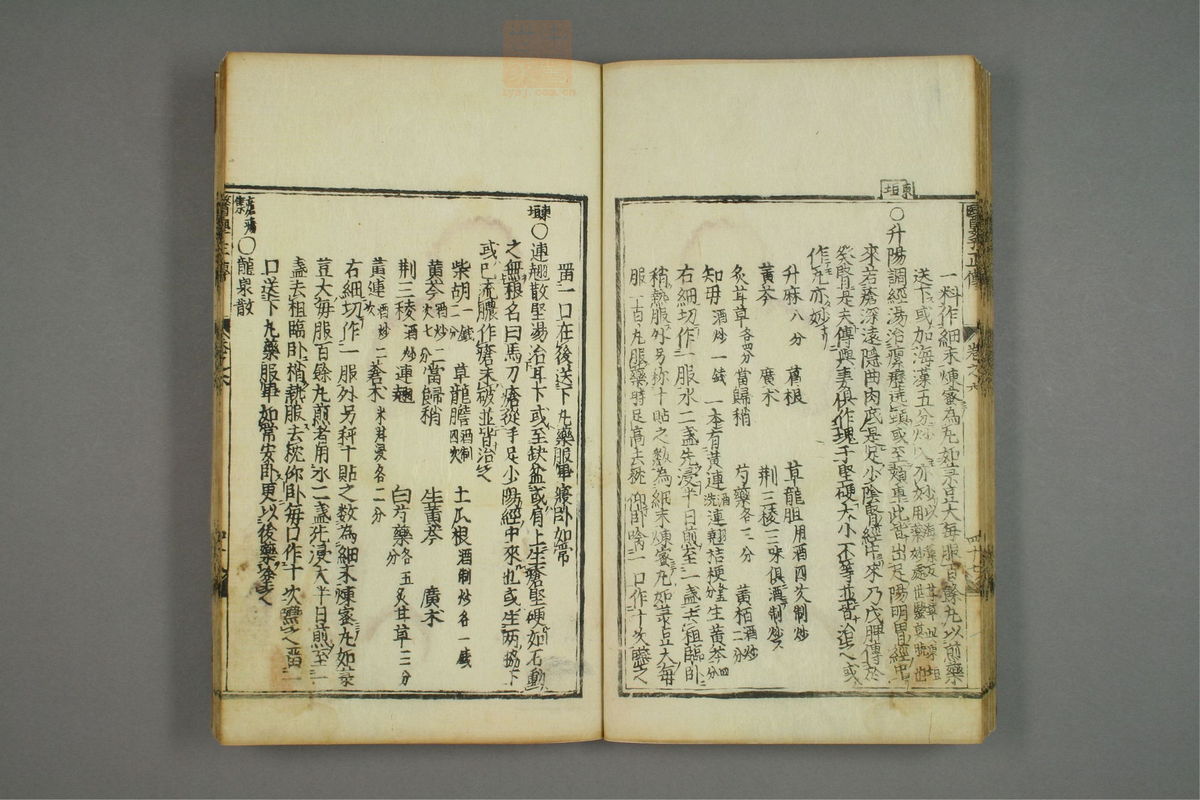 一料作細末煉蜜為丸如菉豆大每服百餘丸以煎藥
送下或加海藻五分炒亦妙
東垣
○升陽調經湯治瘰癧遶頸或至頰車此皆由足陽明胃經中
來若瘡深遠隱曲肉底是足少陰腎經中來乃戊脾傳於
癸腎是夫傳與妻俱作塊子堅硬大小不等並皆治之或
作丸亦妙
升麻八分 葛根 草龍胆用酒四次制炒
黃芩 廣朮 荆三稜三味俱酒制炒
炙甘草各四分 當歸梢 芍藥各三分 黃栢酒炒二分
知母酒炒一錢 一本有黃連酒洗連翹桔梗各 生黃芩四分
右細切作一服水二盞先浸半日煎至一盞去租臨卧
稍熱服外另秤十貼之數為細末煉蜜丸如菉豆大每
服一百丸服藥時足高去枕仰卧噙一口作十次嚥之
醫學正傳 卷之六
畱一口在後送下丸藥服畢寢卧如常
東垣○連翹散堅湯治耳下或至缺盆或肩上生瘡堅硬如石動
之無根名曰馬刀瘡從手足少陽經中來也或生兩脇下
或已流膿作瘡未破並皆治之
柴胡一錢二分 草龍膽酒制四次 土瓜根酒制炒各一錢
黃芩酒炒七分二次 當歸梢 生黃芩 廣朮
荆三稜酒炒 連翹 白芍藥各五分 炙甘草三分
黃連酒炒二次 蒼朮米泔浸各二分
右細切作一服外另秤十貼之數為細末煉蜜丸如菉
荳大每服百餘丸煎者用水二盞先浸大半日煎至一
盞去租臨卧稍熱服去枕仰卧每口作十次嚥之畱一
口送下丸藥服畢如常安卧更以後藥塗之
瘡瘍集○龍泉散